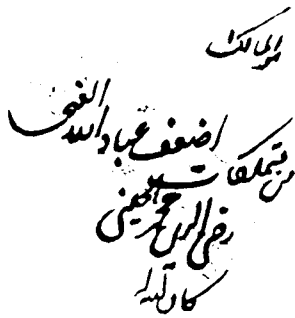 هو المالک
من متملکات اضعف عباد الله الغنی
رضی الدین محمد الحسینی
کان الله له